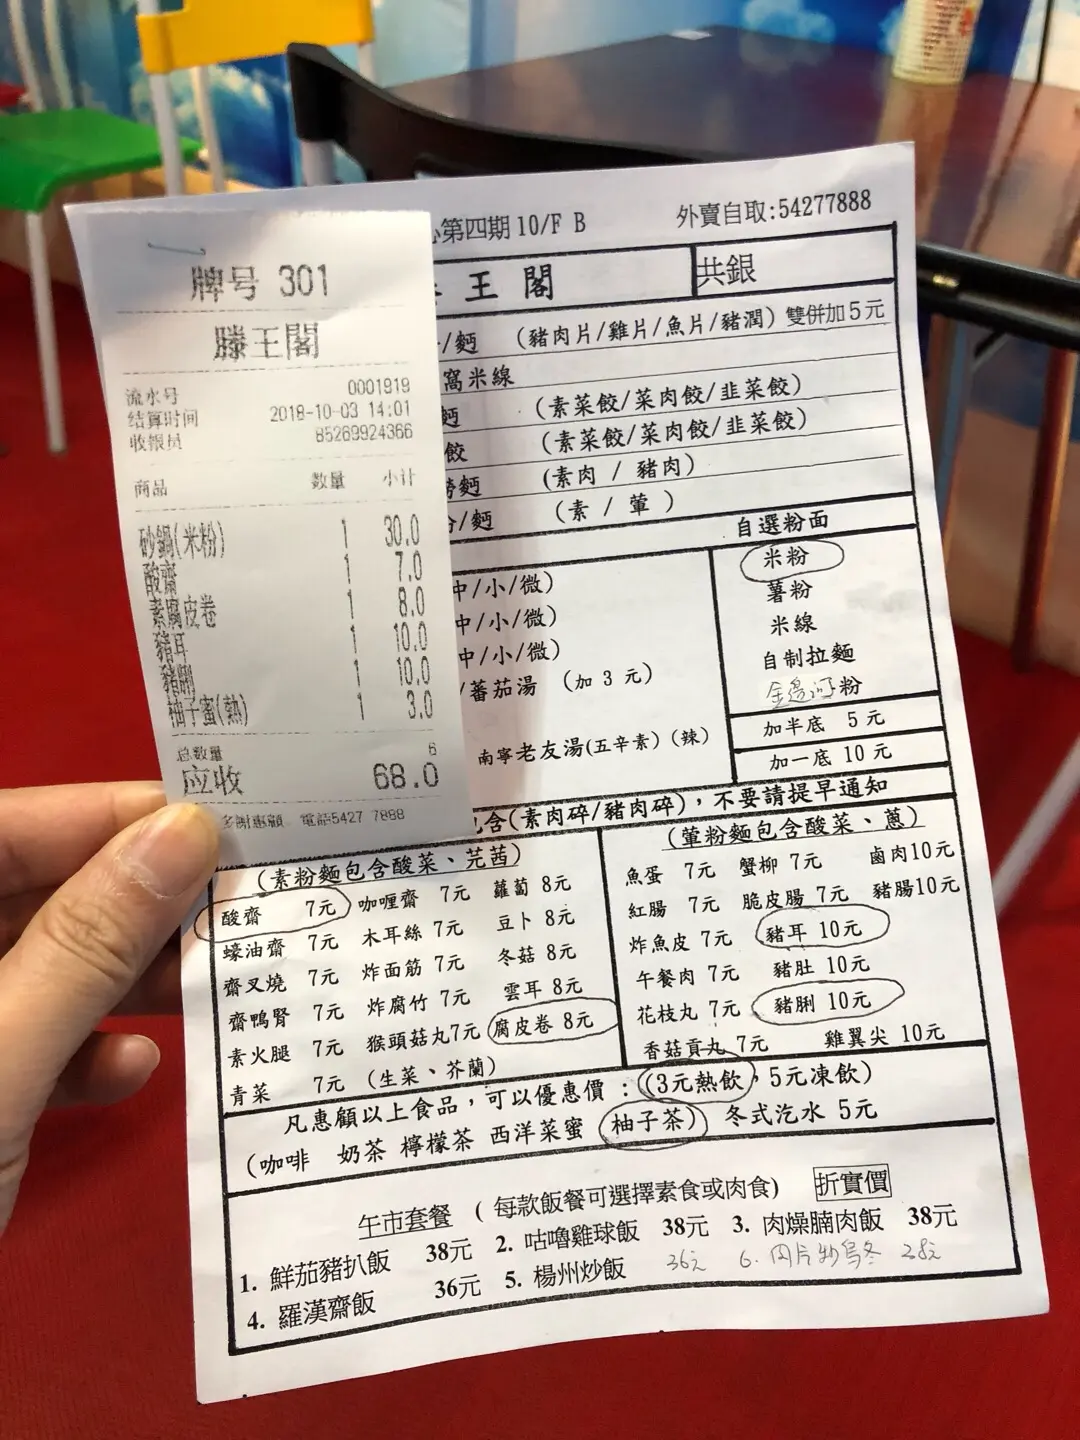 牌号 301
滕王閣
流水号 0001919
结算时间 2018-10-03 14:01
收银员 85269924366
商品 数量 小计
砂鍋(米粉) 1 30.0
酸齋 1 7.0
素腐皮卷 1 8.0
豬耳 1 10.0
豬脷 1 10.0
柚子蜜(熱) 1 3.0
总数量 6
应收 68.0
多謝惠顧 電話5427 7888
心第四期 10/F B 外賣自取:54277888
王 閣 共銀
/麪 (豬肉片/雞片/魚片/豬潤) 雙併加5元
窩米線
麪 (素菜餃/菜肉餃/韭菜餃)
餃 (素菜餃/菜肉餃/韭菜餃)
撈麪 (素肉 / 豬肉)
/麪 (素 / 葷 )
自選粉面
米粉
薯粉
米線
自制拉麵
金邊河粉
加半底 5 元
加一底 10 元
中/小/微)
中/小/微)
中/小/微)
/蕃茄湯 (加 3 元)
南寧老友湯(五辛素)(辣)
包含(素肉碎/豬肉碎), 不要請提早通知
(素粉麵包含酸菜、芫茜)
酸齋 7元 咖喱齋 7元 蘿蔔 8元
蠔油齋 7元 木耳絲 7元 豆卜 8元
齋叉燒 7元 炸面筋 7元 冬菇 8元
齋鴨腎 7元 炸腐竹 7元 雲耳 8元
素火腿 7元 猴頭菇丸7元 腐皮卷 8元
青菜 7元 (生菜、芥蘭)
(葷粉麵包含酸菜、蔥)
魚蛋 7元 蟹柳 7元 鹵肉10元
紅腸 7元 脆皮腸 7元 豬腸10元
炸魚皮 7元 豬耳 10元
午餐肉 7元 豬肚 10元
花枝丸 7元 豬脷 10元
香菇貢丸 7元 雞翼尖 10元
凡惠顧以上食品, 可以優惠價 : (3元熱飲, 5元凍飲)
(咖啡 奶茶 檸檬茶 西洋菜蜜 柚子茶) 冬式汽水 5元
午市套餐 ( 每款飯餐可選擇素食或肉食) 折實價
1. 鮮茄豬扒飯 38元 2. 咕嚕雞球飯 38元 3. 肉燥腩肉飯 38元
4. 羅漢齋飯 36元 5. 楊州炒飯 36元 6. 肉片炒烏冬 38元